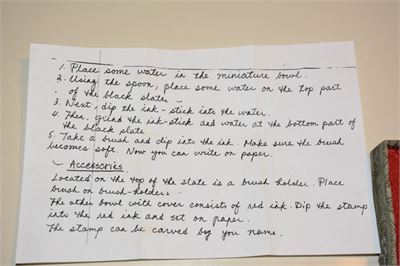 1. Place some water in the miniature bowl.
2. Using the spoon, place some water on the top part
of the black slate -
3. Next, dip the ink-stick into the water.
4. Then, grind the ink-stick and water at the bottom part of
the black slate
5. Take a brush and dip into the ink. Make sure the brush
becomes soft. Now you can write on paper.
Accessories
Located on the top of the slate is a brush holder. Place
brush on brush-holders -
The other bowl with cover consists of red ink. Dip the stamp
into the red ink and set on paper.
The stamp can be carved by you name.